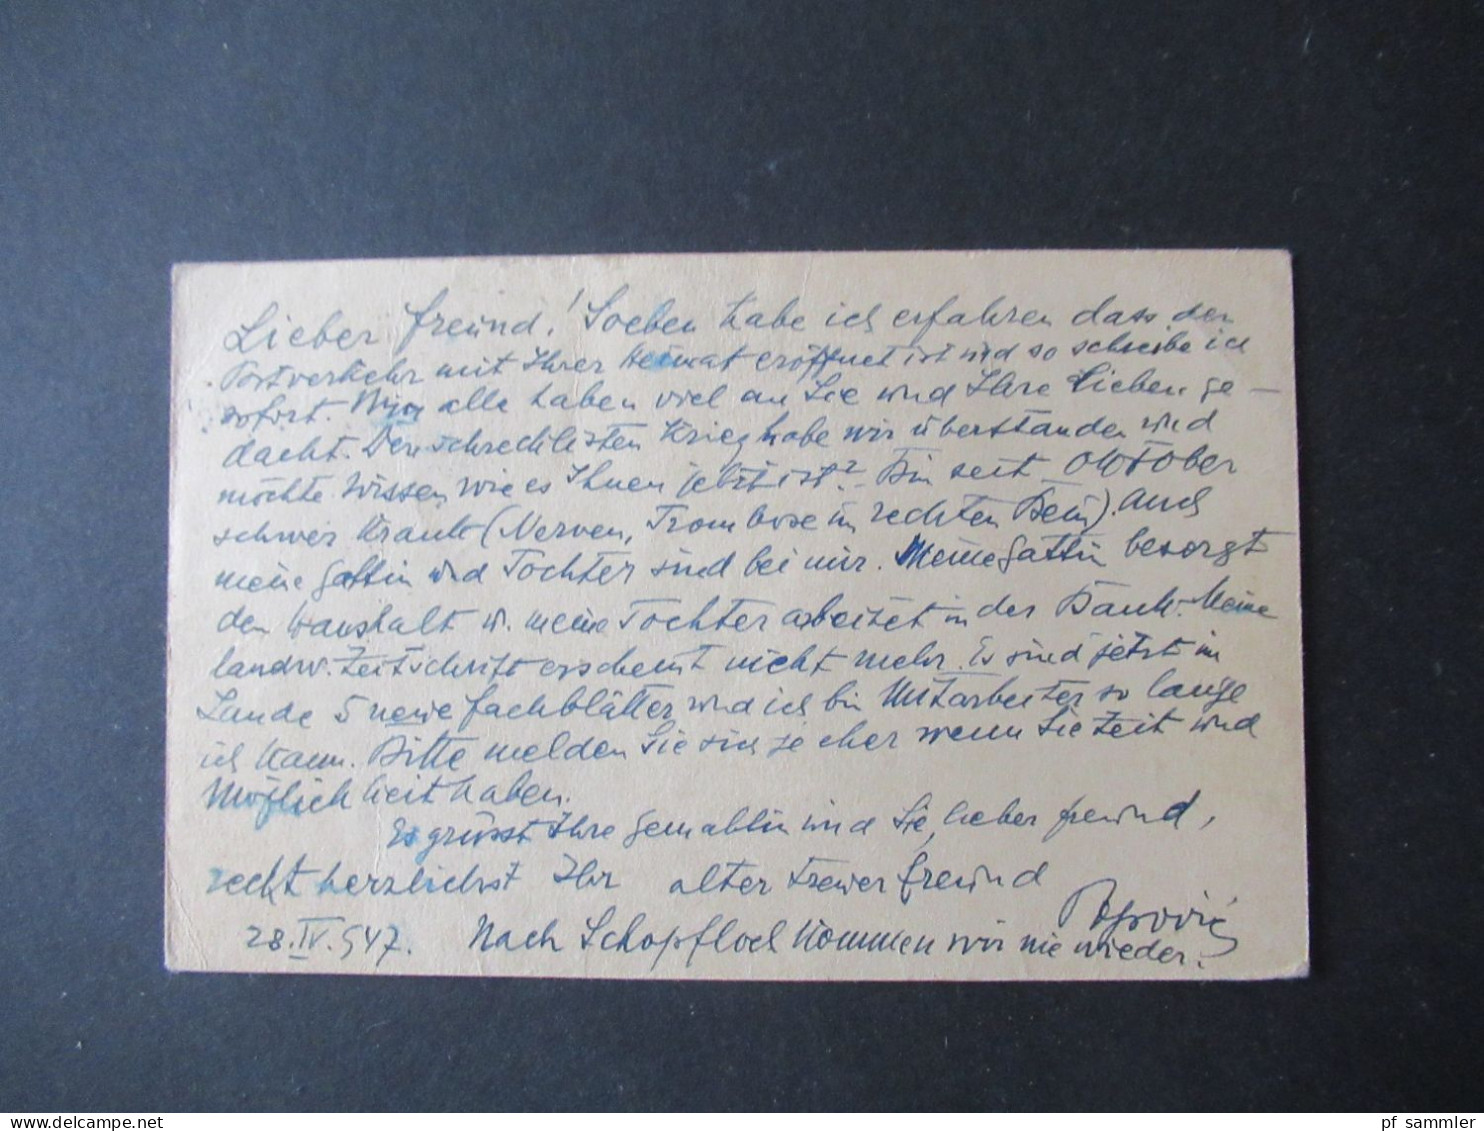 Lieber Freund! Soeben habe ich erfahren dass der
Postverkehr mit Ihrer Heimat eröffnet ist und so schreibe ich
sofort. Wir alle haben viel an Sie und Ihre Lieben ge-
dacht. Den schrecklisten Krieg habe wir überstanden und
möchte wissen wie es Ihnen jetzt ist? Bin seit Oktober
schwer krank (Nerven, Trombose im rechten Bein). Auch
meine Gattin und Tochter sind bei mir. Meine Gattin besorgt
den Haushalt u. meine Tochter arbeitet in der Bank. Meine
landw. Zeitschrift erscheint nicht mehr. Es sind jetzt im
Lande 5 neue Fachblätter und ich bin Mitarbeiter so lange
ich kann. Bitte melden Sie sich je eher wenn Sie Zeit und
Möglichkeit haben.
Es grüsst Ihre Gemahlin und Sie, lieber Freund,
recht herzlichst Ihr alter treuer Freund
Popović
28.IV.947. Nach Schopfloch kommen wir nie wieder.
pf sammler
www.delcampe.net